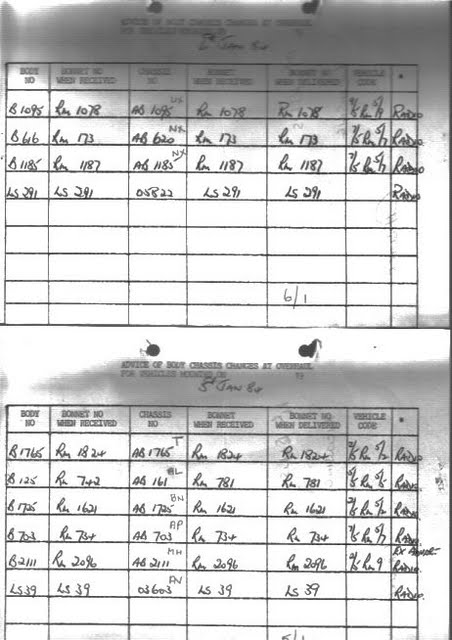 ADVICE OF BODY CHASSIS CHANGES AT OVERHAUL
Jan 84
BODY NO BONNET NO WHEN RECEIVED CHASSIS NO BONNET WHEN RECEIVED BONNET NO WHEN DELIVERED VEHICLE CODE
B1095 Rm 1078 AB 1095 Rm 1078 Rm 1078 RADIO
B616 Rm 173 AB 620 NX Rm 173 Rm 173 RADIO
B1185 Rm 1187 AB 1185 NX Rm 1187 Rm 1187 RADIO
LS 291 LS 291 05822 LS 291 LS 291 RADIO
6/1
ADVICE OF BODY CHASSIS CHANGES AT OVERHAUL
FOR VEHICLES
JAN 84
BODY NO BONNET NO WHEN RECEIVED CHASSIS NO BONNET WHEN RECEIVED BONNET NO WHEN DELIVERED VEHICLE CODE
B1765 Rm 1824 AB 1765 T Rm 1824 Rm 1824 RADIO
B125 Rm 742 AB 161 Rm 781 Rm 781 RADIO
B1725 Rm 1621 AB 1725 BN Rm 1621 Rm 1621 RADIO
B703 Rm 734 AB 703 AP Rm 734 Rm 734 RADIO
B2111 Rm 2096 AB 2111 MH Rm 2096 Rm 2096 RADIO
LS 39 LS 39 03603 LS 39 LS 39 RADIO
5/1